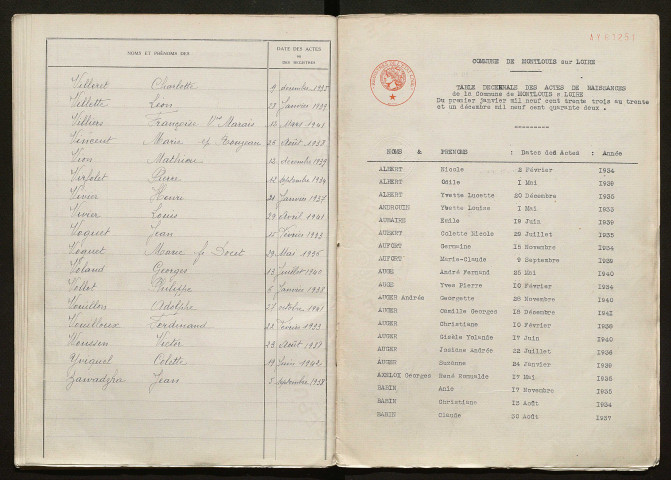 NOMS ET PRÉNOMS DES
DATE DES ACTES
ou
DES REGISTRES
Villeret Charlotte 9 décembre 1935
Villette Léon 23 Janvier 1939
Villiers Françoise Vve Marais 12 Mars 1941
Vincent Marie 26 Août 1938
Vion Mathieu 12 décembre 1939
Pierre 12 septembre 1934
Vivier Henri 21 Janvier 1937
Vivier Louis 29 Avril 1941
Voquet Jean 15 Février 1933
Voquet Marie 29 Mai 1936
Voland Georges 13 Juillet 1940
Vollet Philippe 6 Janvier 1938
Vouillon Adolphe 27 octobre 1941
Vouilloux Ferdinand 22 Février 1933
Voussen Victor 23 Août 1937
Colette 19 Juin 1942
Jean 5 septembre 1938
COMMUNE DE MONTLOUIS sur LOIRE
TABLE DECENNALE DES ACTES DE NAISSANCES
de la Commune de MONTLOUIS s LOIRE
Du premier janvier mil neuf cent trente trois au trente
et un décembre mil neuf cent quarante deux .
NOMS & PRENOMS : Date des Actes : Année
ALBERT Nicole 2 Février 1934
ALBERT Odile 1 Mai 1939
ALBERT Yvette Lucette 20 Décembre 1935
ANDROUIN Yvette Louise 1 Mai 1933
AUBAIRE Emile 19 Juin 1939
AUBERT Colette Nicole 29 Juillet 1935
AUFORT Germaine 15 Novembre 1934
AUFORT Marie-Claude 9 Septembre 1938
AUGE André Fernand 25 Mai 1940
AUGE Yves Pierre 10 Février 1934
AUGER Andrée Georgette 28 Novembre 1940
AUGER Camille Georges 18 Décembre 1941
AUGER Christiane 10 Février 1938
AUGER Gisèle Yolande 17 Juin 1940
AUGER Jossion Andrée 22 Juillet 1936
AUGER Suzanne 24 Janvier 1936
AXELOX Georges René Romualde 17 Mai 1935
BABIN Anie 17 Novembre 1935
BABIN Christiane 12 Août 1934
BABIN Claude 30 Août 1937